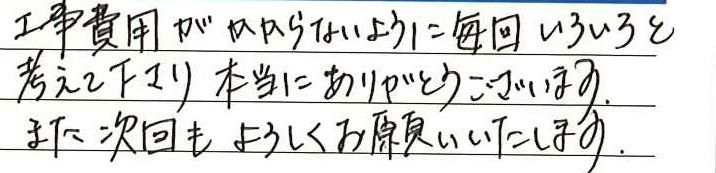 工事費用がかからないように毎回いろいろと
考えて下さり本当にありがとうございます.
また次回もよろしくお願いいたします.